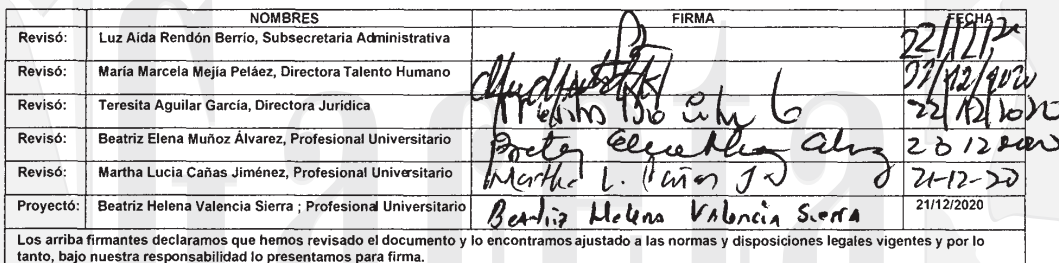 NOMBRES FIRMA FECHA
Revisó: Luz Aida Rendón Berrío, Subsecretaria Administrativa 22/12/20
Revisó: María Marcela Mejía Peláez, Directora Talento Humano
Revisó: Teresita Aguilar García, Directora Jurídica 22/12/2020
Revisó: Beatriz Elena Muñoz Álvarez, Profesional Universitario
Revisó: Martha Lucia Cañas Jiménez, Profesional Universitario Martha L. Cañas J 21-12-20
Proyectó: Beatriz Helena Valencia Sierra ; Profesional Universitario Beatriz Helena Valencia Sierra 21/12/2020
Los arriba firmantes declaramos que hemos revisado el documento y lo encontramos ajustado a las normas y disposiciones legales vigentes y por lo
tanto, bajo nuestra responsabilidad lo presentamos para firma.